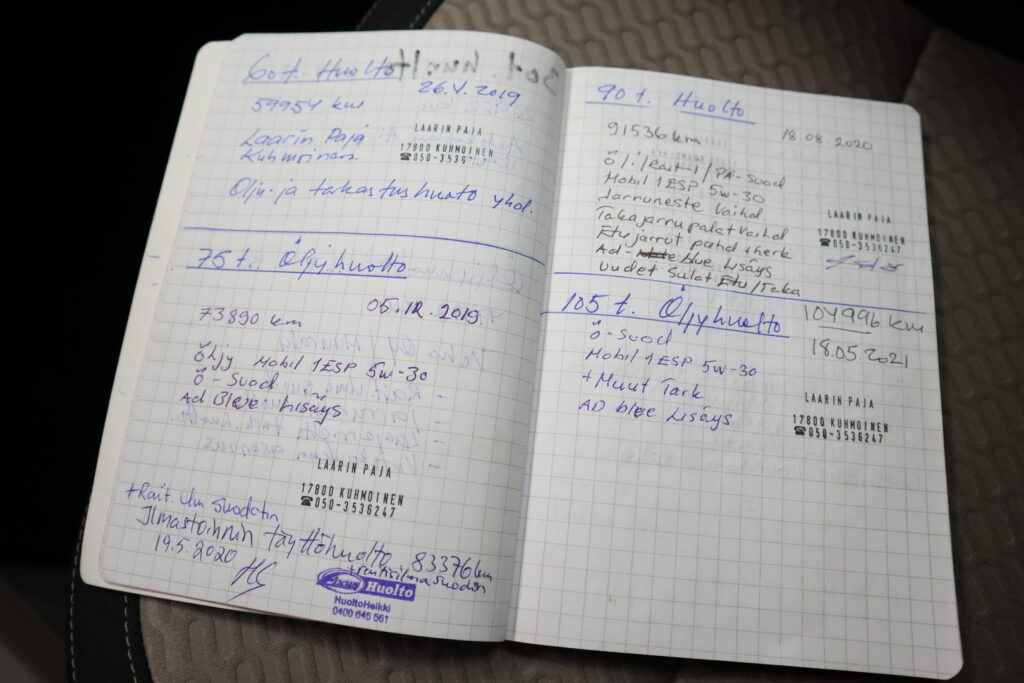 60 t. Huolto
26.4.2019
59954 km
Laarin Paja
Kuhmoinen.
LAARIN PAJA
17800 KUHMOINEN
☎050-3536
Öljy- ja takastushuoto yhd.
75 t. Öljyhuolto
05.12.2019.
73890 km
Öljy Mobil 1 ESP 5w-30
Ö-Suod
Ad Blue Lisäys
LAARIN PAJA
17800 KUHMOINEN
☎050-3536247
+Rait. ilm suodatin
Ilmastoinnin täyttöhuolto 83376 km
19.5.2020
Huolto
HuoltoHeikki
0400 645 561
90 t. Huolto
18.08.2020
91536 km
Ö/i/Rait-i/PA-Suod
Mobil 1 ESP 5w-30
Jarruneste Vaihd
Takajarrupalat Vaihd
Etujarrut puhd + herk
Ad-blue Lisäys
Uudet Sulat Etu/Taka
LAARIN PAJA
17800 KUHMOINEN
☎050-3536247
105 t. Öljyhuolto
104996 km
18.05.2021
Ö-Suod
Mobil 1 ESP 5w-30
+Muut Tark
AD blue Lisäys
LAARIN PAJA
17800 KUHMOINEN
☎050-3536247